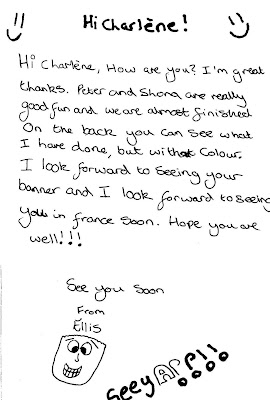 Hi Charlène!
Hi Charlène, How are you? I'm great
thanks. Peter and Shona are really
good fun and we are almost finished
On the back you can see what
I have done, but without Colour.
I look forward to Seeing your
banner and I look forward to seeing
you in france Soon. Hope you are
well!!!
See you Soon
From
Ellis